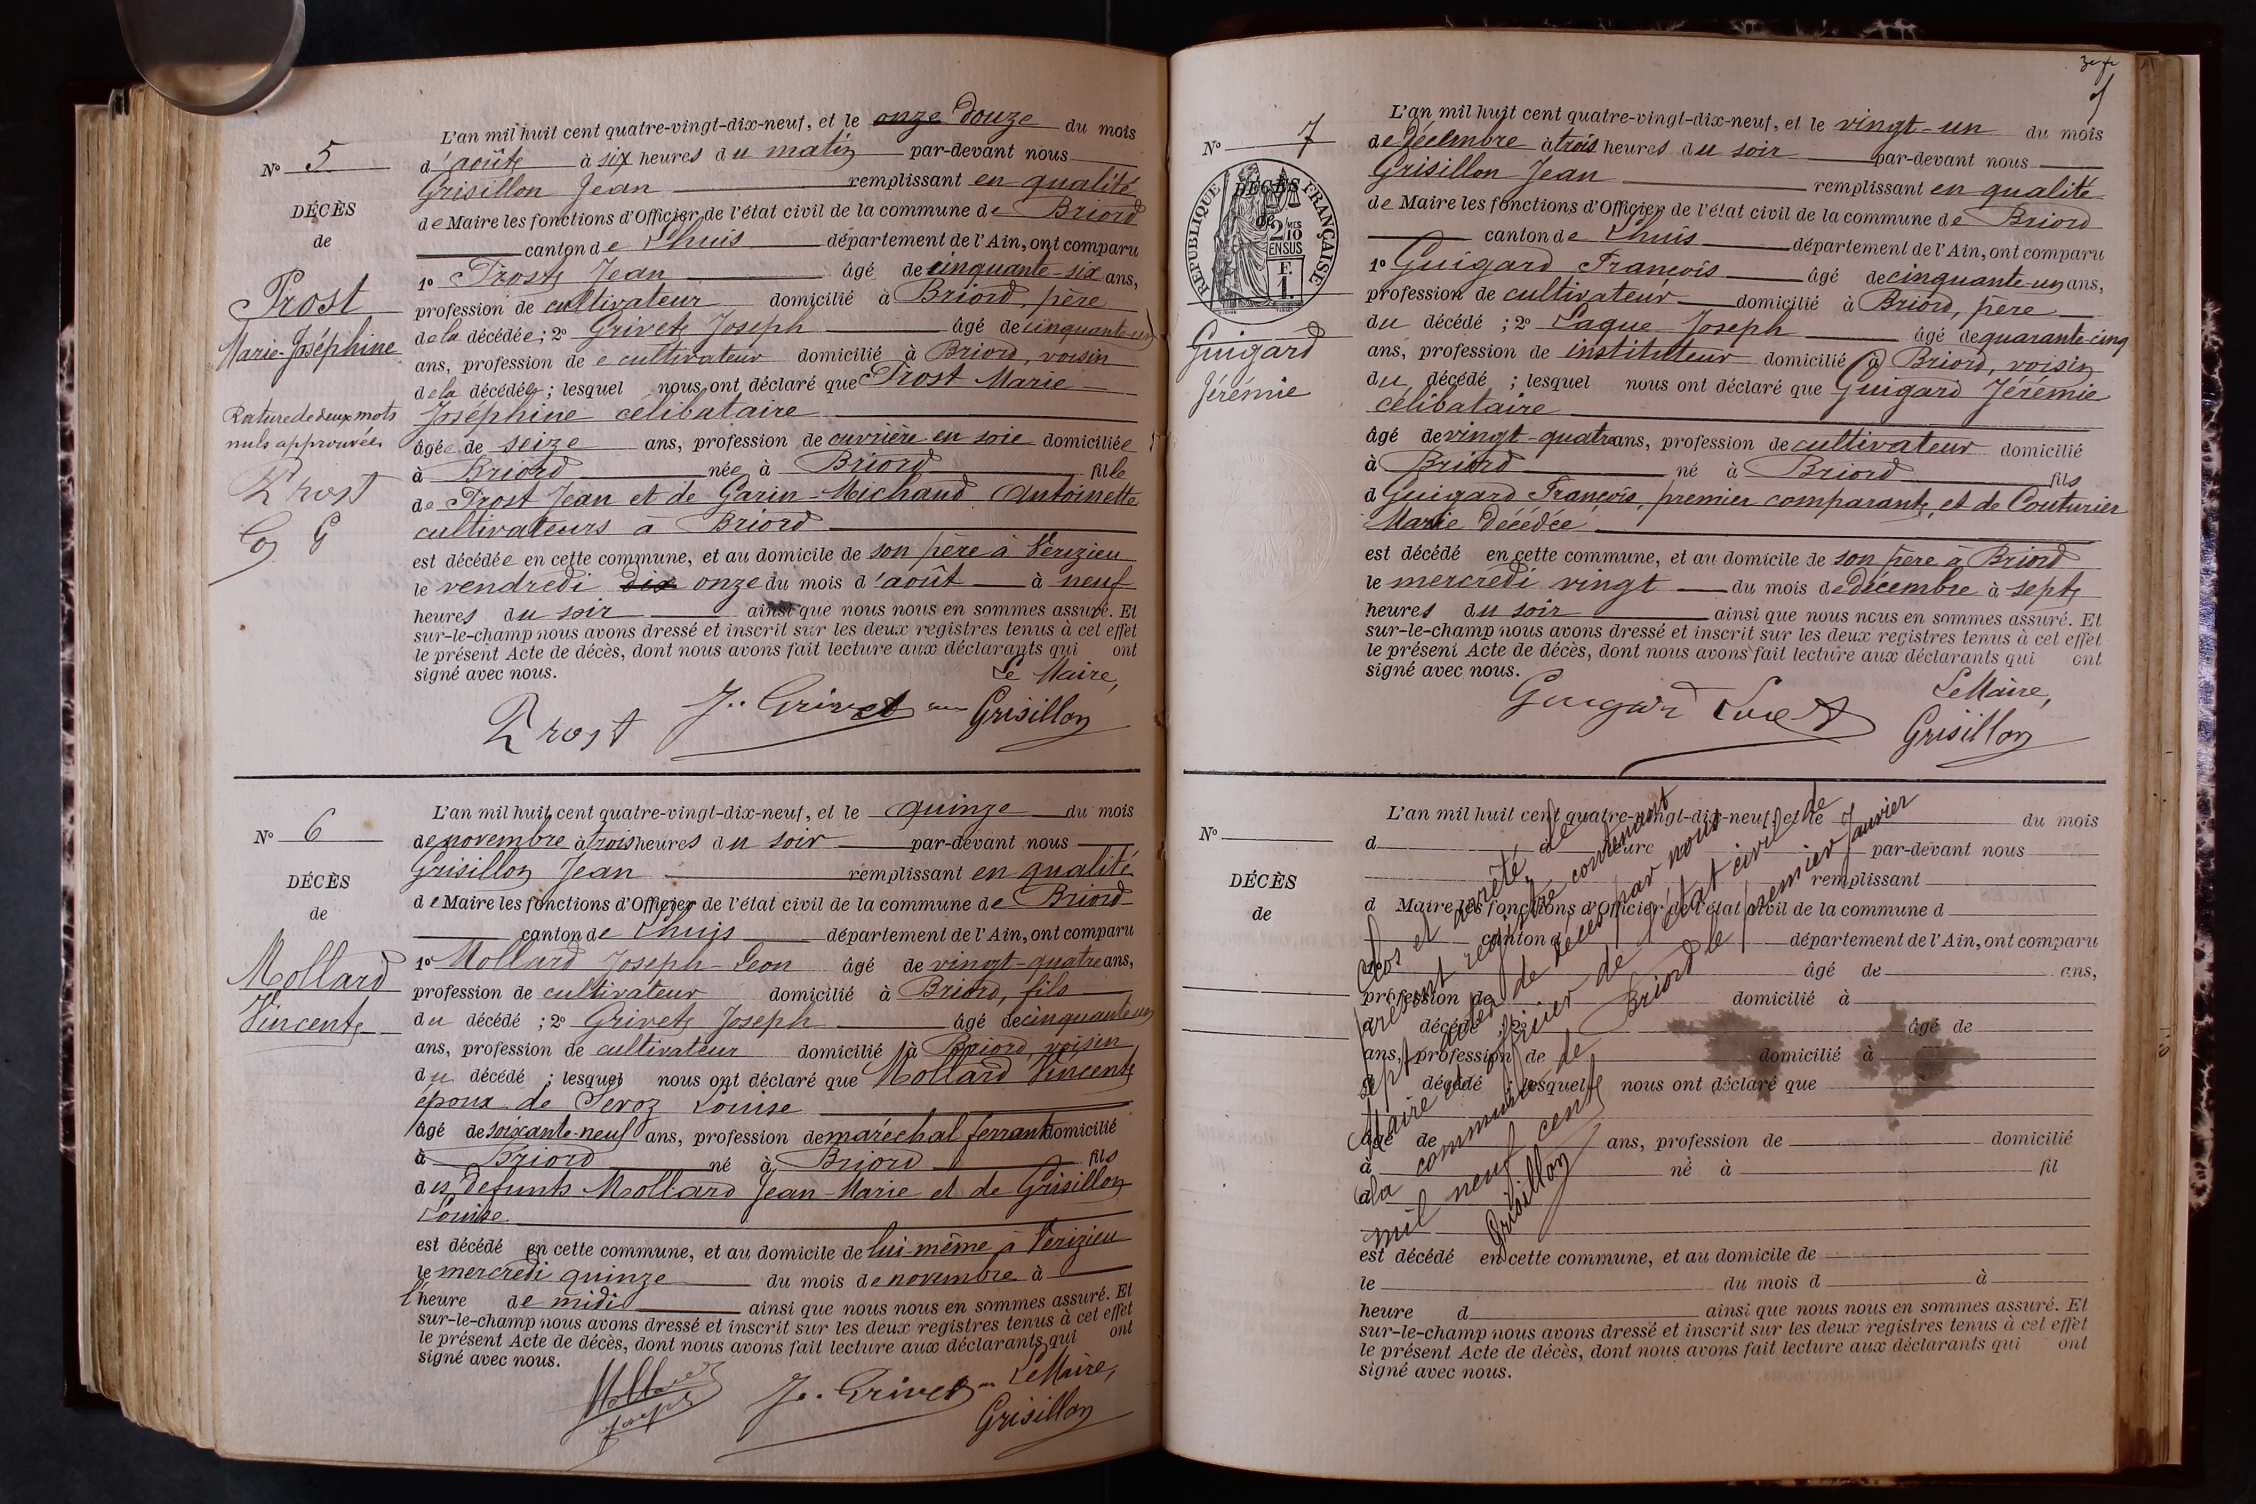 L'an mil huit cent quatre-vingt-dix-neuf, et le onze douze du mois
N° 5 d'août à six heures du matin par-devant nous
Grisillon Jean remplissant en qualité
DÉCÈS de Maire les fonctions d'Officier de l'état civil de la commune de Briord
de canton de Lhuis département de l'Ain, ont comparu
1° Prost Jean âgé de cinquante-six ans,
Prost profession de cultivateur domicilié à Briord, père
de la décédée ; 2° Grivet Joseph âgé de cinquante-un
Marie-Joséphine ans, profession de cultivateur domicilié à Briord, voisin
de la décédée ; lesquel nous ont déclaré que Prost Marie
Rature de deux mots Joséphine célibataire
nuls approuvée. âgée de seize ans, profession de ouvrière en soie domiciliée
Prost à Briord née à Briord fille
de Prost Jean et de Garin-Michaud Antoinette
G G cultivateurs à Briord
est décédée en cette commune, et au domicile de son père à Vérizieu
le vendredi dix onze du mois d'août à neuf
heures du soir ainsi que nous nous en sommes assuré. Et
sur-le-champ nous avons dressé et inscrit sur les deux registres tenus à cet effet
le présent Acte de décès, dont nous avons fait lecture aux déclarants qui ont
signé avec nous. Le Maire,
Prost J. Grivet Grisillon
L'an mil huit cent quatre-vingt-dix-neuf, et le quinze du mois
N° 6 de novembre à trois heures du soir par-devant nous
Grisillon Jean remplissant en qualité
DÉCÈS de Maire les fonctions d'Officier de l'état civil de la commune de Briord
de canton de Lhuis département de l'Ain, ont comparu
Mollard 1° Mollard Joseph-Léon âgé de vingt-quatre ans,
profession de cultivateur domicilié à Briord, fils
Vincent du décédé ; 2° Grivet Joseph âgé de cinquante-un
ans, profession de cultivateur domicilié à Briord, voisin
du décédé ; lesquel nous ont déclaré que Mollard Vincent
époux de Servoz Louise
âgé de soixante-neuf ans, profession de maréchal ferrant domicilié
à Briord né à Briord fils
des defunts Mollard Jean-Marie et de Grisillon
Louise
est décédé en cette commune, et au domicile de lui-même à Vérizieu
le mercredi quinze du mois de novembre à
l'heure de midi ainsi que nous nous en sommes assuré. Et
sur-le-champ nous avons dressé et inscrit sur les deux registres tenus à cet effet
le présent Acte de décès, dont nous avons fait lecture aux déclarants qui ont
signé avec nous. Le Maire,
Mollard Joseph J. Grivet Grisillon
L'an mil huit cent quatre-vingt-dix-neuf, et le vingt-un du mois
N° 7 de décembre à trois heures du soir par-devant nous
Grisillon Jean remplissant en qualité
DÉCÈS de Maire les fonctions d'Officier de l'état civil de la commune de Briord
de canton de Lhuis département de l'Ain, ont comparu
RÉPUBLIQUE FRANÇAISE
2/10 MES EN SUS
F. 1.
1° Guigard François âgé de cinquante-un ans,
profession de cultivateur domicilié à Briord, père
Guigard du décédé ; 2° Joseph âgé de quarante-cinq
ans, profession de instituteur domicilié à Briord, voisin
Jérémie du décédé ; lesquel nous ont déclaré que Guigard Jérémie
célibataire
âgé de vingt-quatre ans, profession de cultivateur domicilié
à Briord né à Briord fils
d Guigard François, premier comparant, et de Couturier
Marie décédée
est décédé en cette commune, et au domicile de son père à Briord
le mercredi vingt du mois de décembre à sept
heures du soir ainsi que nous nous en sommes assuré. Et
sur-le-champ nous avons dressé et inscrit sur les deux registres tenus à cet effet
le présent Acte de décès, dont nous avons fait lecture aux déclarants qui ont
signé avec nous. Le Maire,
Guigard Grisillon
L'an mil huit cent quatre-vingt-dix-neuf, et le du mois
N° d à heure par-devant nous
remplissant
DÉCÈS d Maire les fonctions d'Officier de l'état civil de la commune d
de canton d département de l'Ain, ont comparu
1° âgé de ans,
profession de domicilié à
d décédé ; 2° âgé de
ans, profession de domicilié à
d décédé ; lesquel nous ont déclaré que
âgé de ans, profession de domicilié
à né à fil
d
est décédé en cette commune, et au domicile de
le du mois d à
heure d ainsi que nous nous en sommes assuré. Et
sur-le-champ nous avons dressé et inscrit sur les deux registres tenus à cet effet
le présent Acte de décès, dont nous avons fait lecture aux déclarants qui ont
signé avec nous.
Clos et arrêté le
présent registre contenant
sept actes de décès par nous
Maire et officier de l'état civil de
la commune de Briord le premier Janvier
mil neuf cent
Grisillon